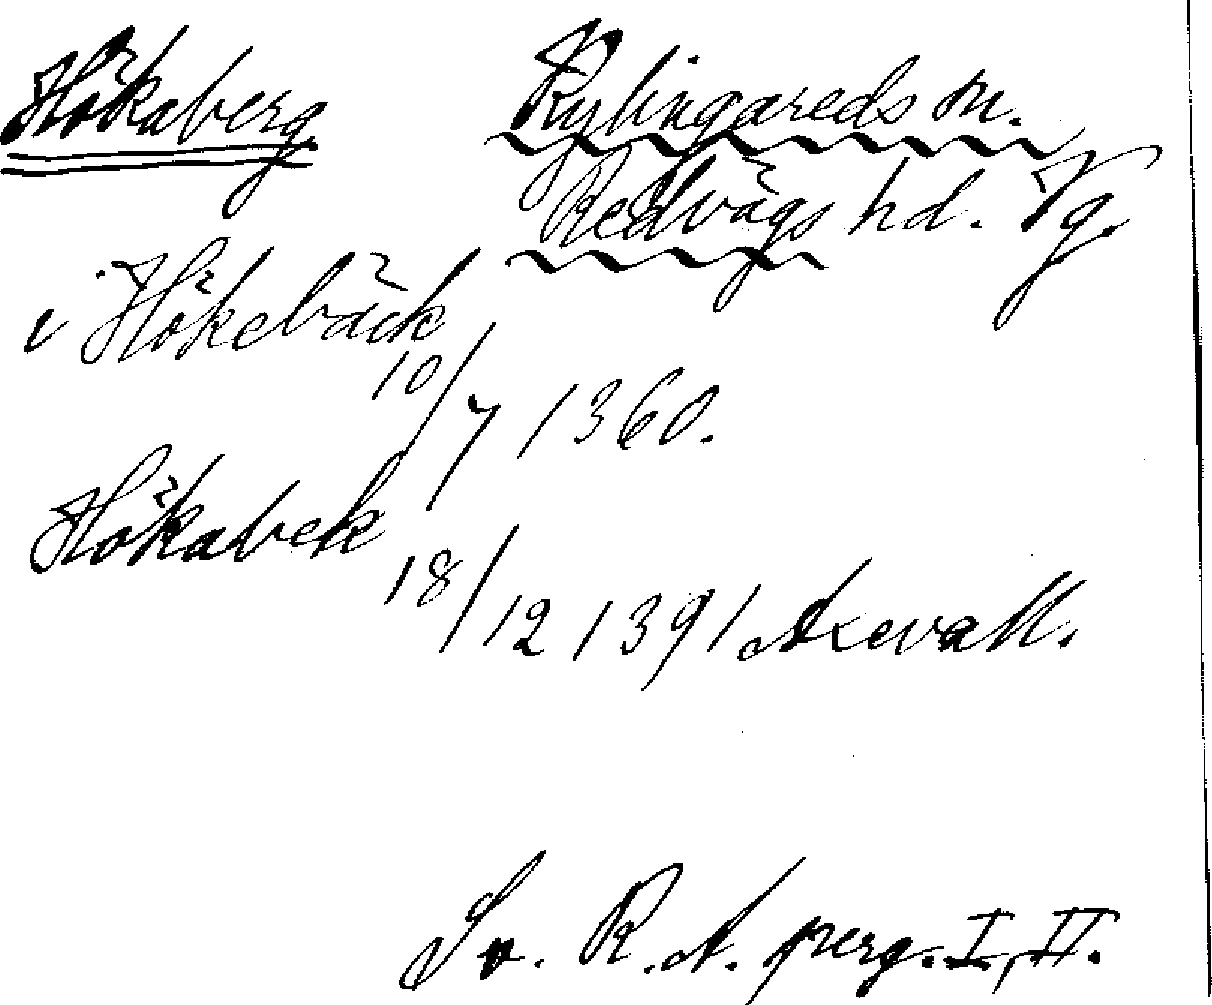 Hökaberg
Kylingareds sn.
Redvägs hd. Vg.
i Hökebäck
10/7 1360.
Hökabek
18/12 1391 Axevall.
Sv. R. A. perg. I, II.